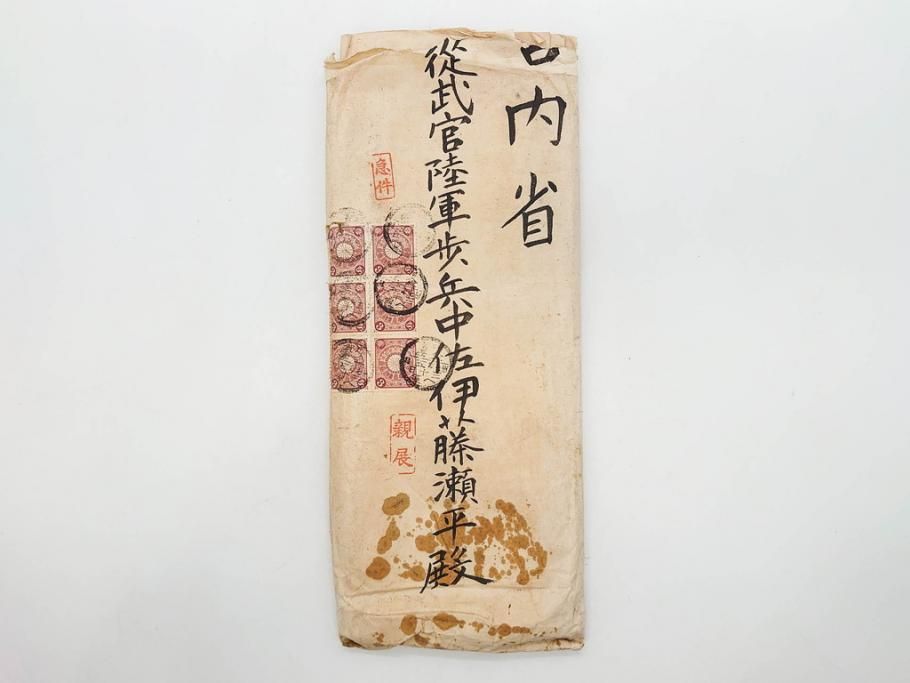 宮内省
侍從武官陸軍歩兵中佐伊藤瀬平殿
急件
親展